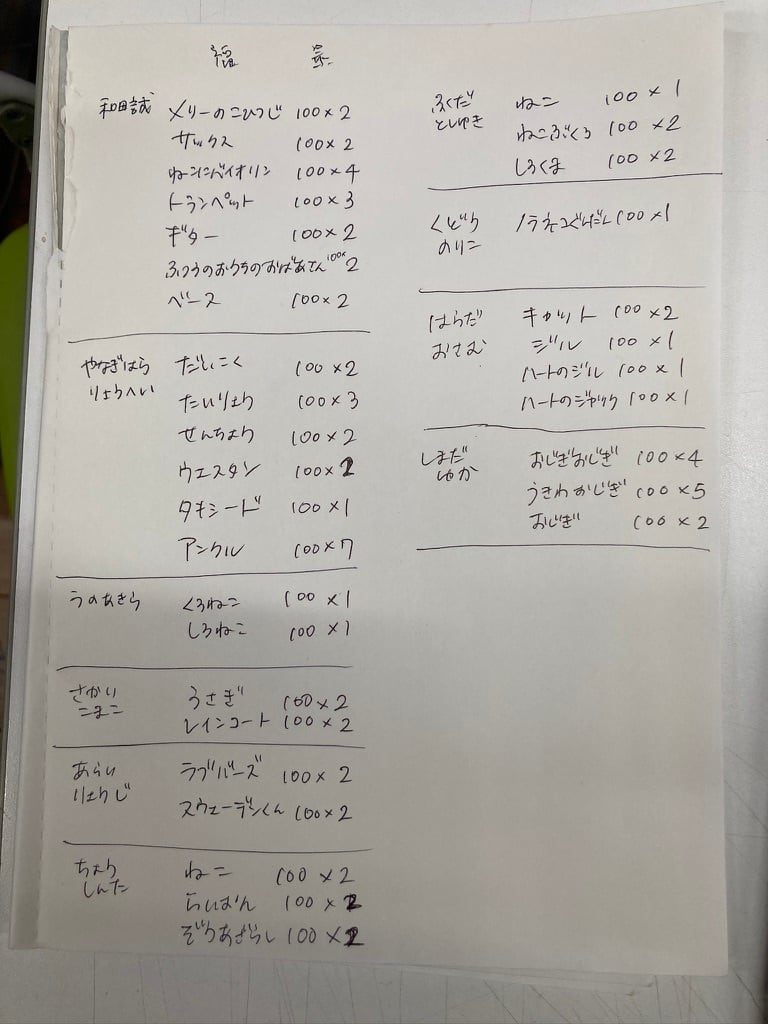 和田誠 メリーのこひつじ 100×2
サックス 100×2
ねこにバイオリン 100×4
トランペット 100×3
ギター 100×2
ふつうのおうちのおばあさん 100×2
ベース 100×2
やなぎはら だいこく 100×2
りょうへい たいりょう 100×3
せんちょう 100×2
ウエスタン 100×2
タキシード 100×1
アンクル 100×7
うのあきら くろねこ 100×1
しろねこ 100×1
さかい うさぎ 100×2
こまこ レインコート 100×2
あらい ラブバーズ 100×2
りょうじ スウェーデンくん 100×2
ちょう ねこ 100×2
しんた らいおん 100×2
ぞうあざらし 100×2
ふくだ ねこ 100×1
としゆき ねこぶくろ 100×2
しろくま 100×2
くどう ノラネコぐんだん 100×1
のりこ
はらだ キャット 100×2
おさむ ジル 100×1
ハートのジル 100×1
ハートのジャック 100×1
しまだ おじぎおじぎ 100×4
ゆか うきわおじぎ 100×5
おじぎ 100×2